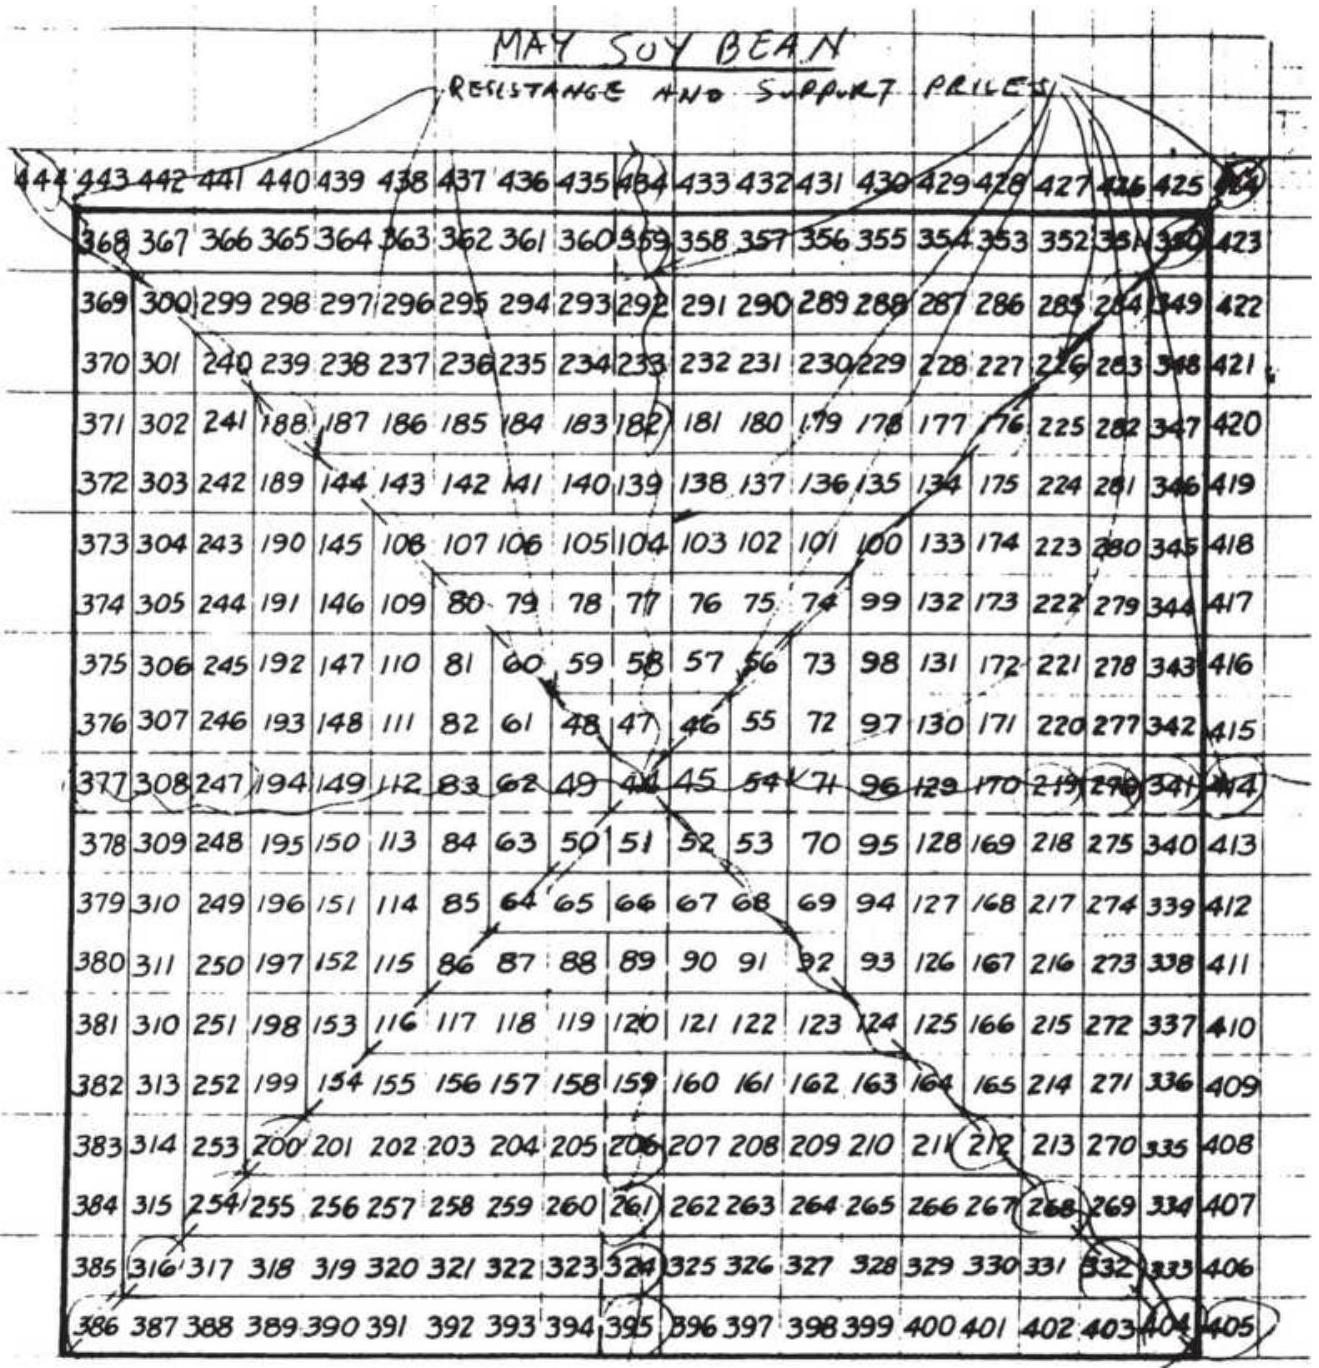 MAY SOY BEAN
RESISTANCE AND SUPPORT PRICES
444 443 442 441 440 439 438 437 436 435 434 433 432 431 430 429 428 427 426 425 424
368 367 366 365 364 363 362 361 360 359 358 357 356 355 354 353 352 351 350 423
369 300 299 298 297 296 295 294 293 292 291 290 289 288 287 286 285 284 349 422
370 301 240 239 238 237 236 235 234 233 232 231 230 229 228 227 226 283 348 421
371 302 241 188 187 186 185 184 183 182 181 180 179 178 177 176 225 282 347 420
372 303 242 189 144 143 142 141 140 139 138 137 136 135 134 175 224 281 346 419
373 304 243 190 145 108 107 106 105 104 103 102 101 100 133 174 223 280 345 418
374 305 244 191 146 109 80 79 78 77 76 75 74 99 132 173 222 279 344 417
375 306 245 192 147 110 81 60 59 58 57 56 73 98 131 172 221 278 343 416
376 307 246 193 148 111 82 61 48 47 46 55 72 97 130 171 220 277 342 415
377 308 247 194 149 112 83 62 49 44 45 54 71 96 129 170 219 276 341 414
378 309 248 195 150 113 84 63 50 51 52 53 70 95 128 169 218 275 340 413
379 310 249 196 151 114 85 64 65 66 67 68 69 94 127 168 217 274 339 412
380 311 250 197 152 115 86 87 88 89 90 91 92 93 126 167 216 273 338 411
381 310 251 198 153 116 117 118 119 120 121 122 123 124 125 166 215 272 337 410
382 313 252 199 154 155 156 157 158 159 160 161 162 163 164 165 214 271 336 409
383 314 253 200 201 202 203 204 205 206 207 208 209 210 211 212 213 270 335 408
384 315 254 255 256 257 258 259 260 261 262 263 264 265 266 267 268 269 334 407
385 316 317 318 319 320 321 322 323 324 325 326 327 328 329 330 331 332 333 406
386 387 388 389 390 391 392 393 394 395 396 397 398 399 400 401 402 403 404 405